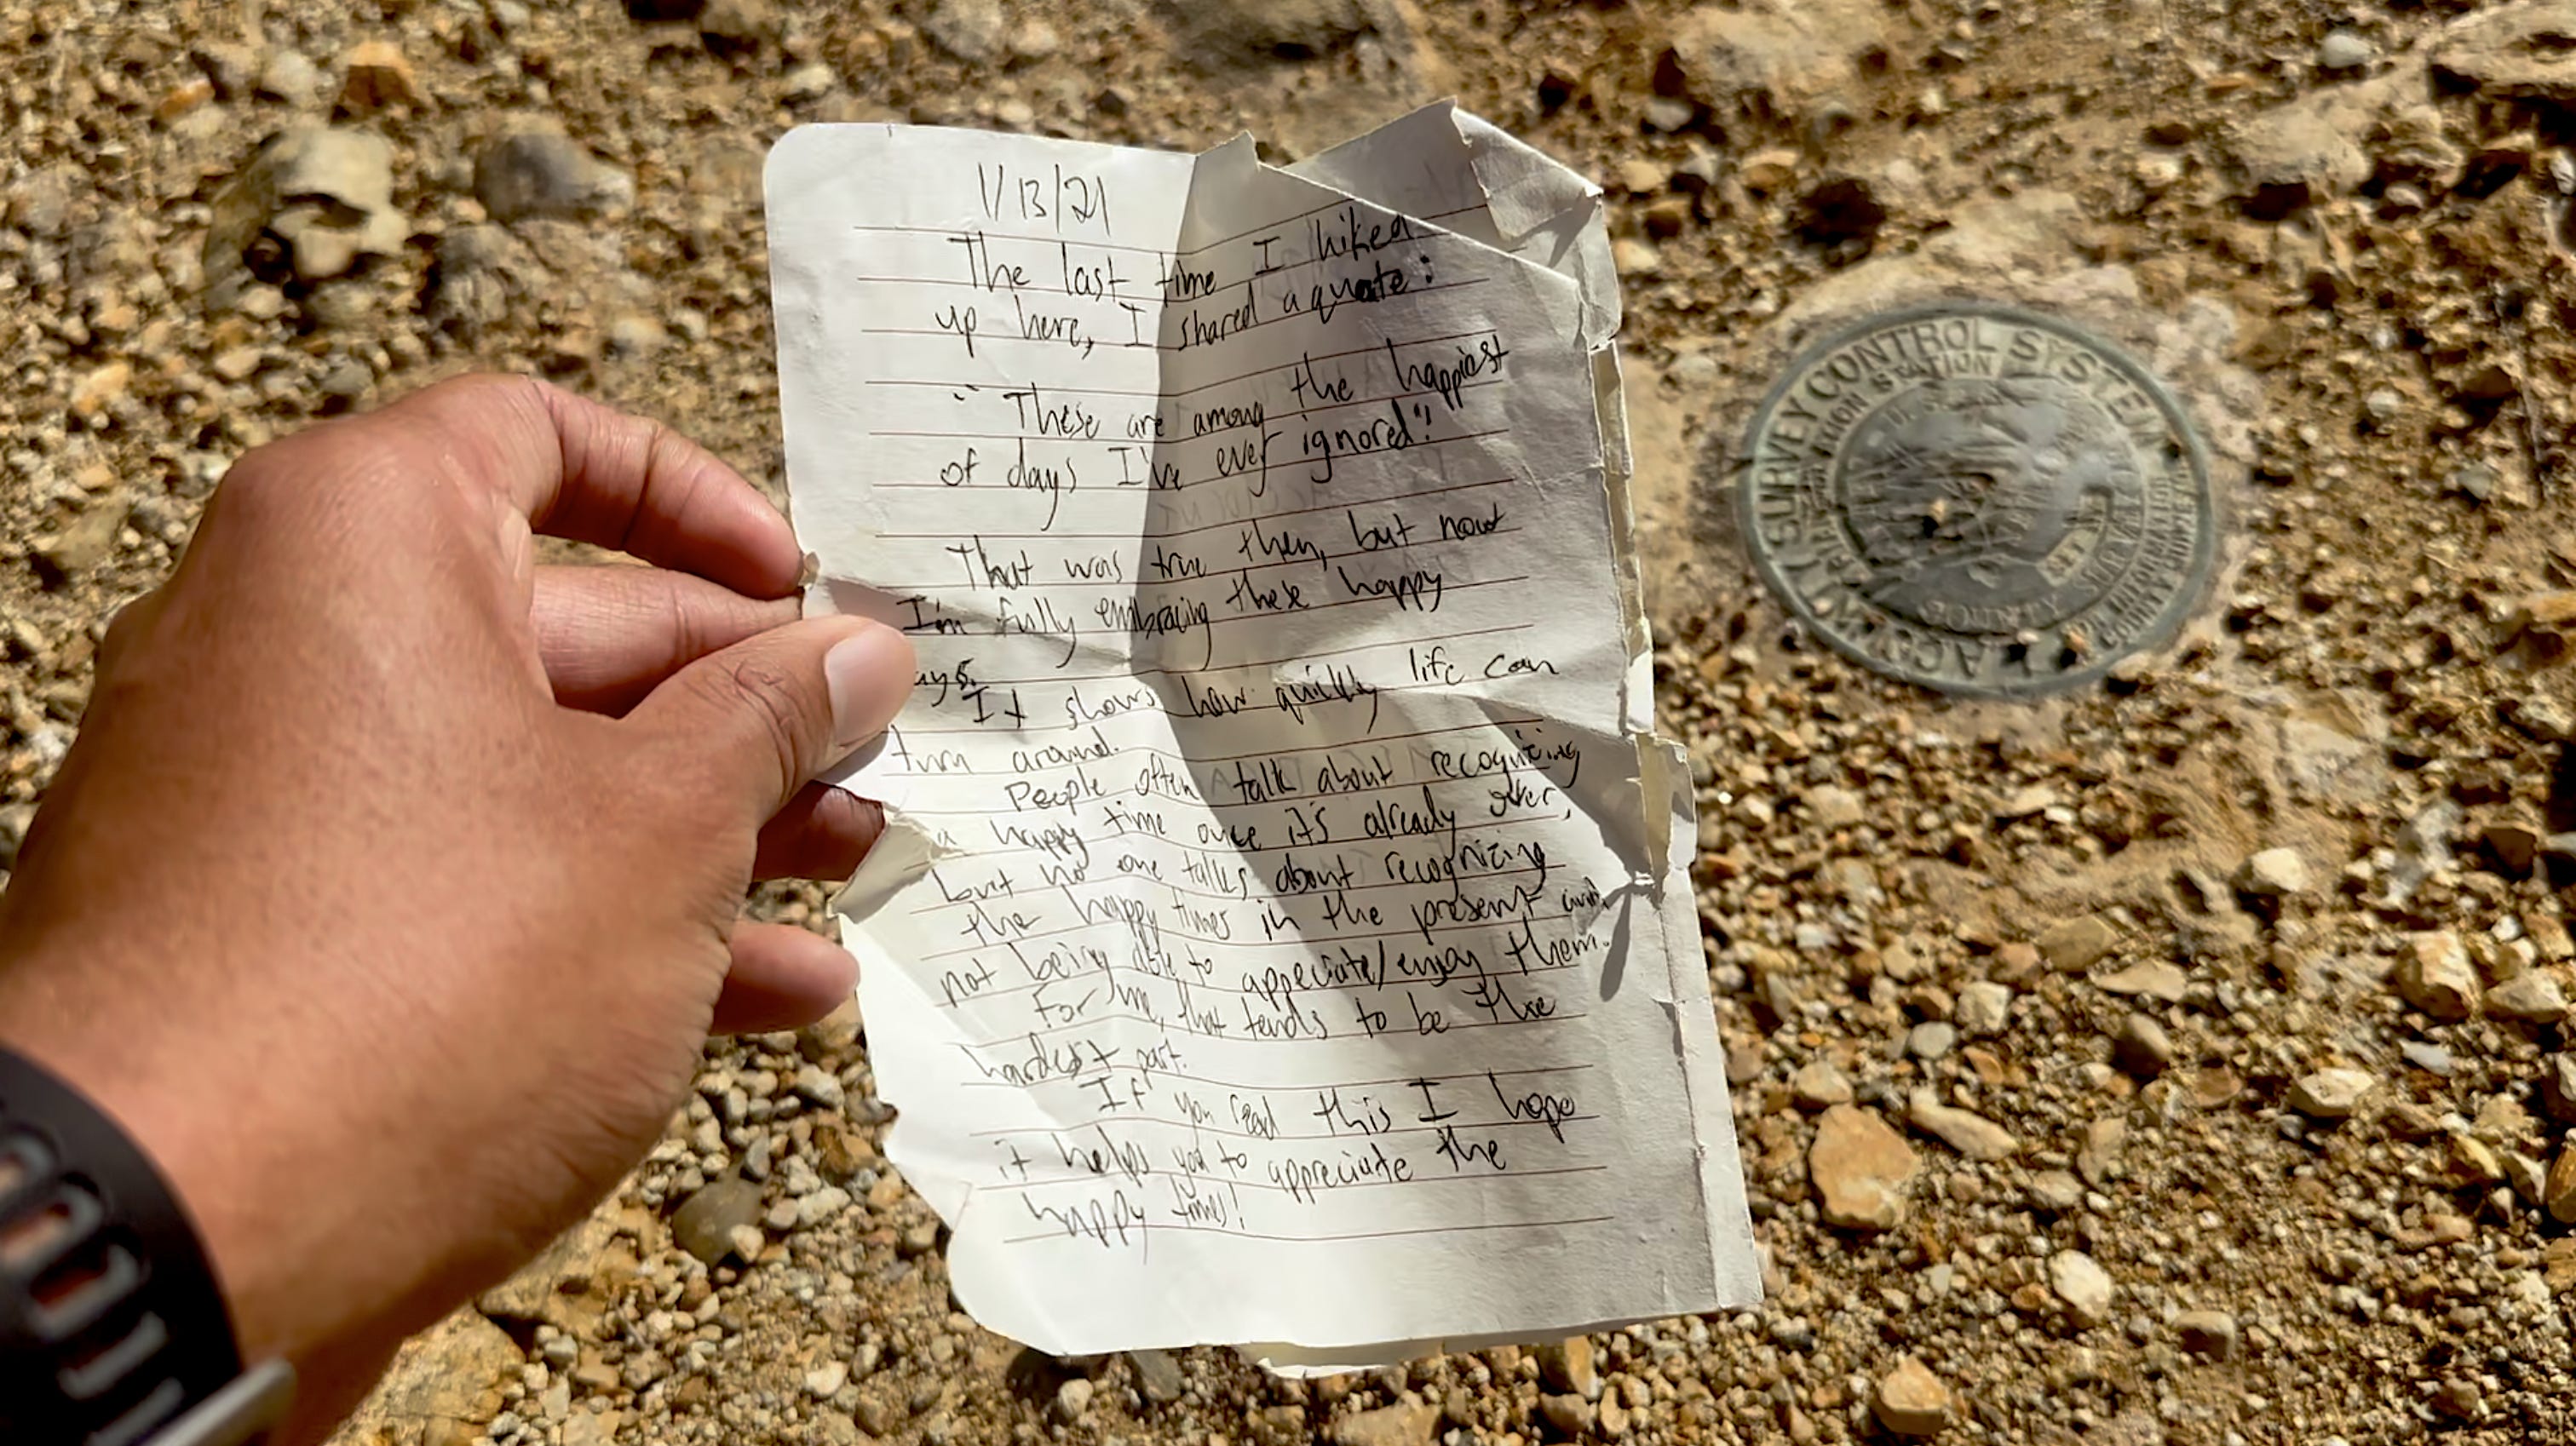 1/13/21
The last time I hiked
up here, I shared a quote:
"These are among the happiest
of days I've ever ignored"!
That was true then, but now
I'm fully embracing these happy
ays.
It shows how quickly life can
turn around.
People often talk about recognizing
a happy time once it's already over,
but no one talks about recognizing
the happy times in the present and
not being able to appreciate/enjoy them.
For me, that tends to be the
hardest part.
If you read this I hope
it helps you to appreciate the
happy times!
SURVEY CONTROL SYSTEM
STATION